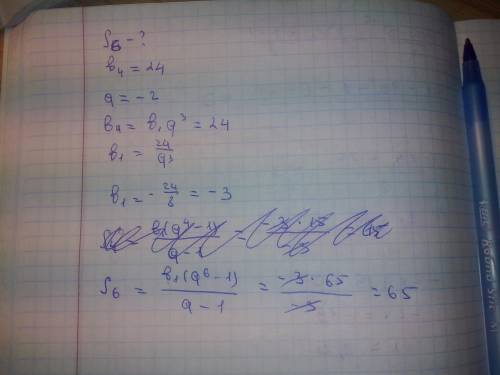 S₆ - ?
b₄ = 24
q = -2
b₄ = b₁q³ = 24
b₁ = 24/q³
b₁ = - 24/8 = -3
S₆ = b₁(q⁶-1)/(q-1) = -3·65/-3 = 65